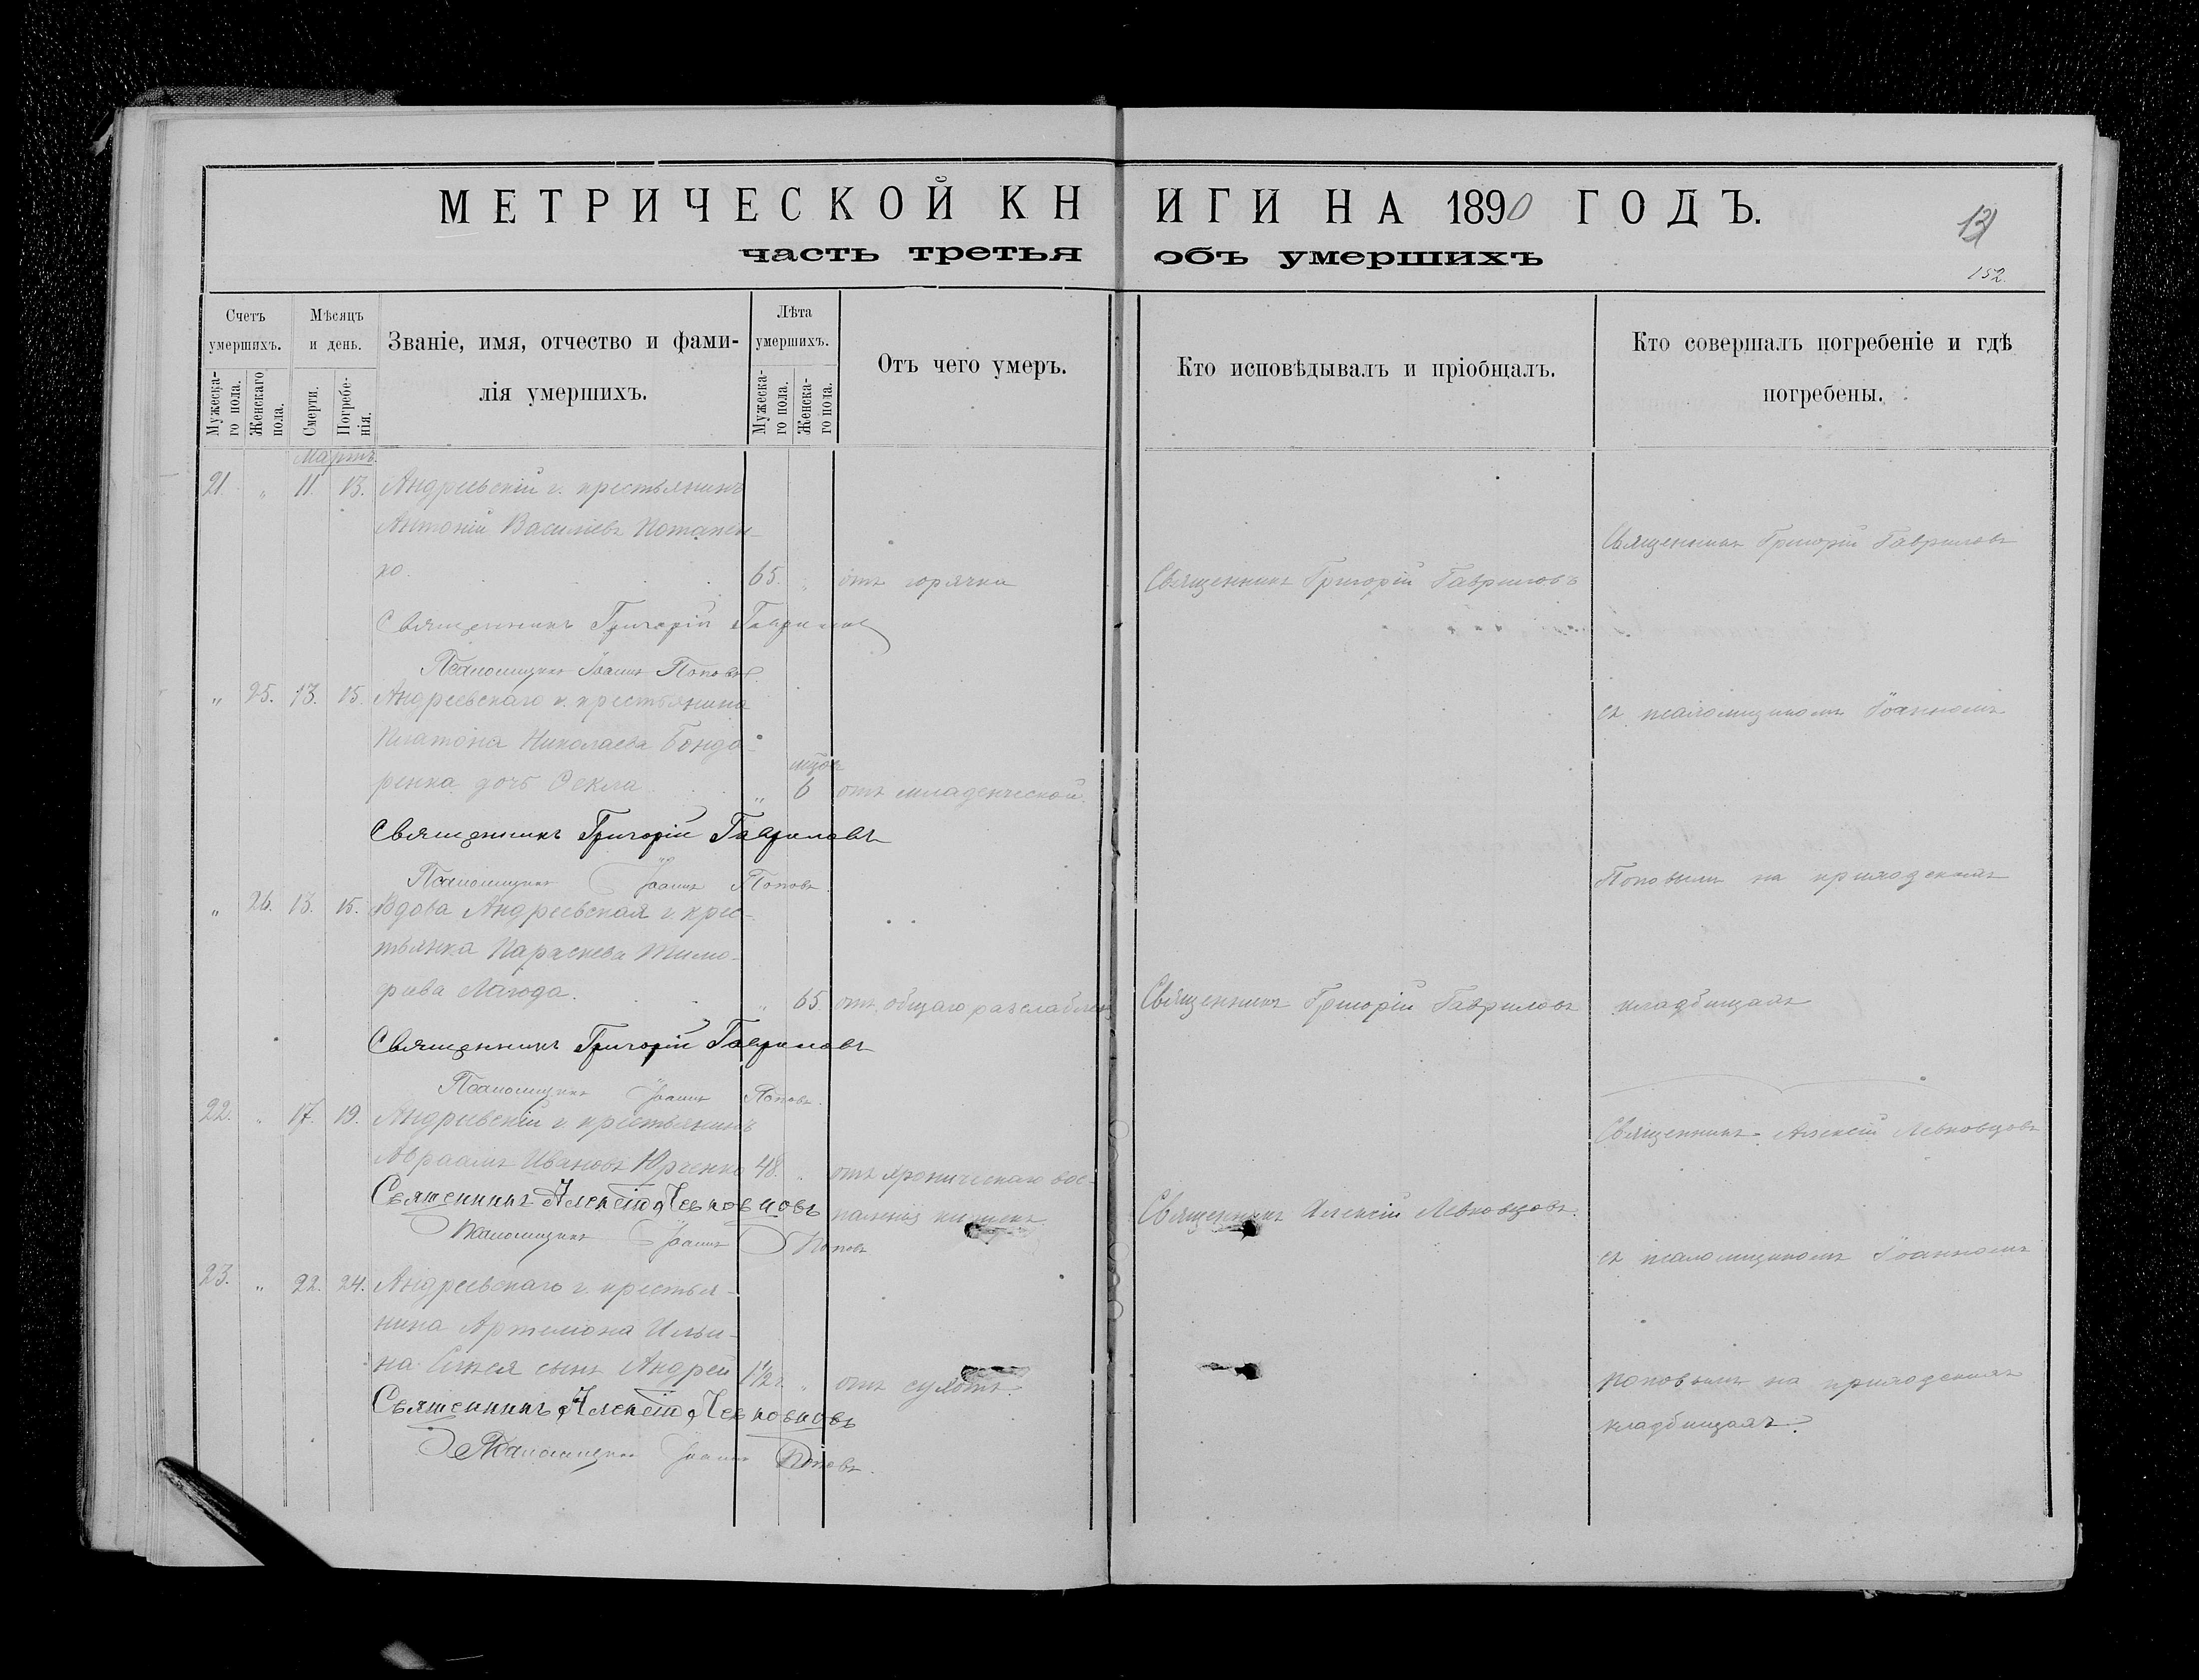 МЕТРИЧЕСКОЙ КНИГИ НА 1890 ГОДЪ.
часть третья объ умершихъ
131
152.
Счетъ умершихъ.
Мужеска-
го пола.
Женскаго
пола.
Мѣсяцъ
и день.
Смерти.
Погребе-
нія.
Званіе, имя, отчество и фами-
лія умершихъ.
Лѣта
умершихъ.
Мужеска-
го пола.
Женска-
го пола.
Отъ чего умеръ.
Кто исповѣдывалъ и пріобщалъ.
Кто совершалъ погребеніе и гдѣ
погребены.
Мартъ.
21 „ 11 13. Андреевскій г. крестьянинъ
Антоній Василіевъ Потапен-
ко. 65. „ отъ горячки
Священникъ Григорій Гавриловъ
Священникъ Григорій Гавриловъ
Священникъ Григорій Гавриловъ
Псаломщикъ Іоаннъ Поповъ
„ 25. 13. 15. Андреевскаго г. крестьянина
съ псаломщикомъ Іоанномъ
Платона Николаева Бонда-
ренка дочь Ѳекла „ 6 отъ младенческой.
Священникъ Григорій Гавриловъ
Псаломщикъ Іоаннъ Поповъ.
Поповымъ на приходскомъ
„ 26. 13. 15. Вдова Андреевская г. крес-
тьянка Параскева Тимо-
феева 65. отъ общаго разслаблен
Священникъ Григорій Гавриловъ
кладбищахъ
Священникъ Григорій Гавриловъ
Псаломщикъ Іоаннъ Поповъ.
22. „ 17. 19. Андреевскій г. крестьянинъ
Священникъ Алексій Левковцовъ
Авраамъ Ивановъ Юрченко 48. „ отъ хроническаго вос-
паленія кишекъ
Священникъ Алексій Левковцовъ
Священникъ Алексій Левковцовъ.
Псаломщикъ Іоаннъ Поповъ
съ псаломщикомъ Іоанномъ
23. „ 22. 24. Андреевскаго г. крестья-
нина Артемона Ильи-
на сынъ Андрей 1 1/2 „ отъ сухотъ
Поповымъ на приходскихъ
кладбищахъ.
Священникъ Алексій Левковцовъ
Псаломщикъ Іоаннъ Поповъ.